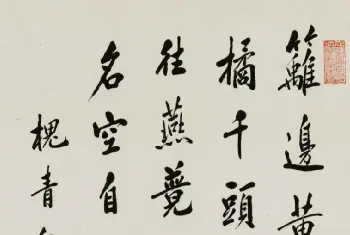 籬邊黄
橘千頭
往燕
名空自
槐青